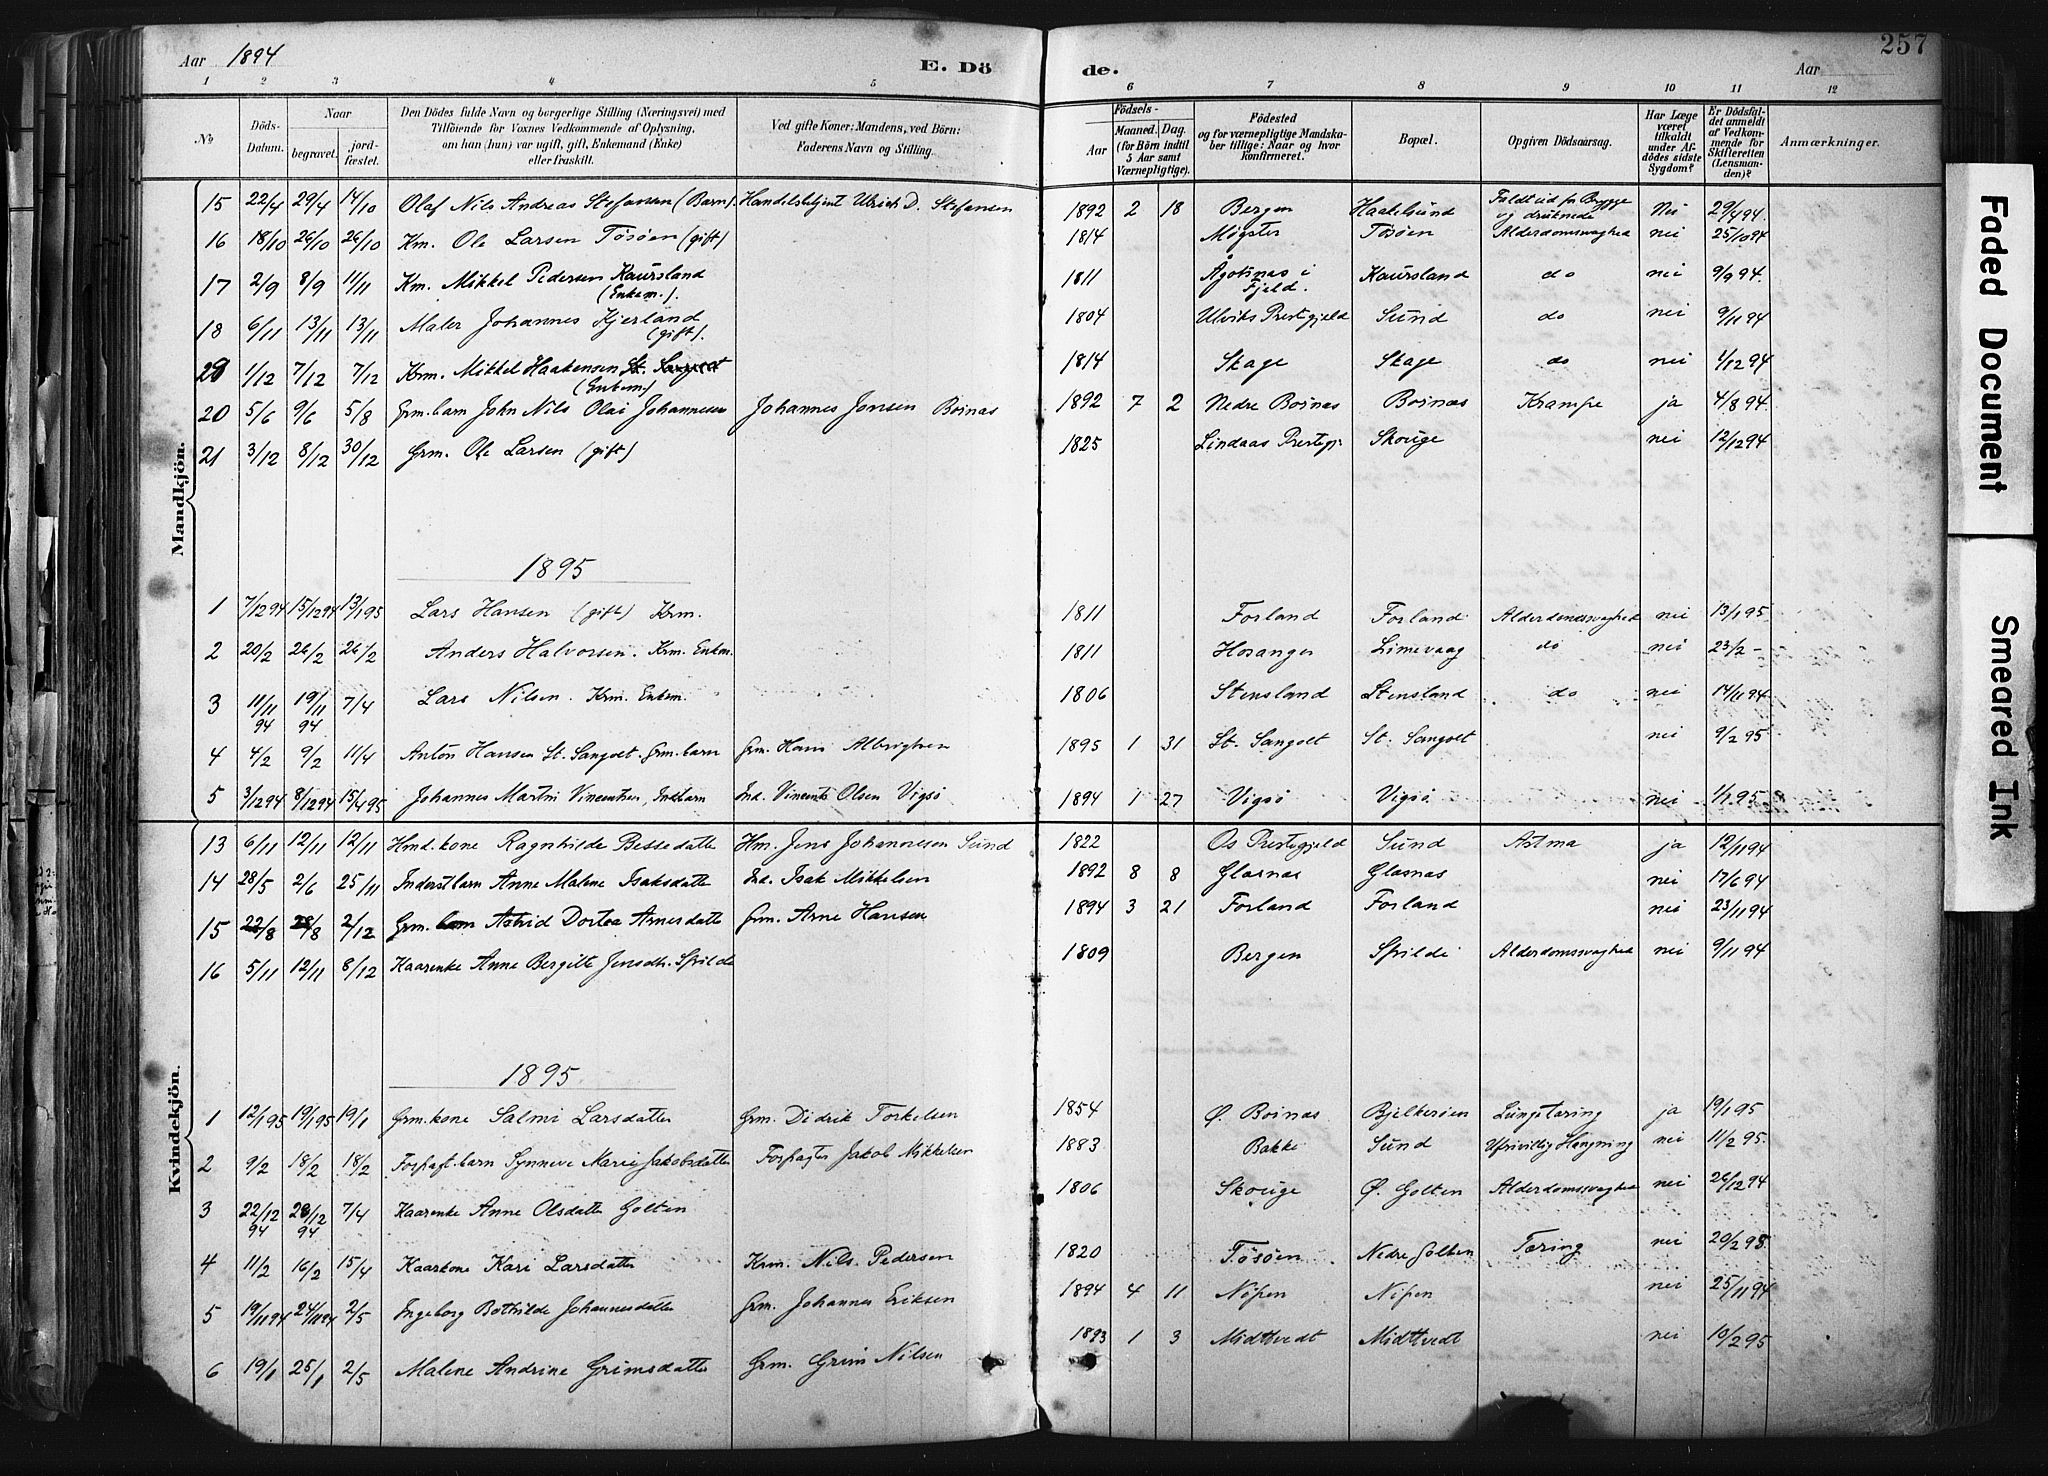 Aar 1894 E. Döde. Aar 257
1 2 3 4 5 6 7 8 9 10 11 12
No
Döds-Datum.
Naar
begravet.
jord-fæstet.
Den Dödes fulde Navn og borgerlige Stilling (Næringsvei) med
Tilföiende for Voxnes Vedkommende af Oplysning,
om han (hun) var ugift, gift, Enkemand (Enke)
eller fraskilt.
Ved gifte Koner: Mandens, ved Börn:
Faderens Navn og Stilling.
Födsels-
Aar
Maaned. Dag.
(for Börn indtil
5 Aar samt
Værnepligtige).
Födested
og for værnepligtige Mandska-
ber tillige: Naar og hvor
konfirmeret.
Bopæl.
Opgiven Dödsaarsag.
Har Læge
været
tilkaldt
under Af-
dödes sidste
Sygdom?
Er Dödsfal-
det anmeldt
af Vedkom-
mende for
Skifteretten
(Lensman-
den)?
Anmærkninger.
Mandkjön.
15 22/4 29/4 14/10 Olaf Nils Andreas Stefansen (Barn). Handelsbetjent Ulrich D. Stefansen 1892 2 18 Bergen Haakelsund Faldt ud fr Brygge og druknede Nei 29/4 94.
16 18/10 26/10 26/10 Km. Ole Larsen Tösöen (gift) 1814 Mögster Tösöen Alderdomssvaghed nei 25/10 94
17 2/9 8/9 11/11 Km. Mikkel Pedersen Kaursland (Enkem.). 1811 Ågotnes i Fjeld. Kaursland do nei 9/9 94.
18 6/11 13/11 13/11 Maler Johannes Kjerland (gift). 1804 Ulviks Prestegjeld Sund do nei 9/11 94
1/12 7/12 7/12 Krm. Mikkel Haakensen (Enkem.) 1814 Skage Skage do nei 1/12 94
20 5/6 9/6 5/8 Grm. barn John Nils Olai Johannessen Johannes Jonsen Boinæs 1892 7 2 Nedre Boinæs Boinæs Krampe ja 4/8 94.
21 3/12 8/12 30/12 Grm. Ole Larsen (gift) 1825 Lindaas Prestegj. Skouge nei 12/12 94
1895
1 7/12 94 15/12 94 13/1 95 Lars Hansen (gift) Krm. 1811 Forland Forland Alderdomssvaghed nei 13/1 95.
2 20/2 26/2 26/2 Anders Halvorsen. Krm. Enkm. 1811 Hosanger Limevaag do nei 23/2 -
3 11/11 94 19/11 94 7/4 Lars Nilsen. Krm. Enkem. 1806 Stensland Stensland do nei 14/11 94
4 4/2 9/2 11/4 Anton Hansen St. Sangolt. Grm. barn Grm. Hans Albrigtsen 1895 1 31 St. Sangolt St. Sangolt nei 9/2 95.
5 3/12 94 8/12 94 15/4 95 Johannes Martin Vincentsen, Indbarn Ind. Vincents Olsen Vigsö 1894 1 27 Vigsö Vigsö nei 1/1 95.
Kvindekjön.
13 6/11 12/11 12/11 Hmd. kone Ragnhilde Bessedatter Hm. Jens Johannesen Sund 1822 Os Prestegjeld Sund Astma ja 12/11 94
14 28/5 2/6 25/11 Inderstbarn Anne Malene Isaksdatter Ind. Isak Mikkelsen 1892 8 8 Glæsnæs Glæsnæs nei 17/6 94
15 22/8 28/8 2/12 Grm. barn Astrid Dortea Arnesdatter Grm. Arne Hansen 1894 3 21 Forland Forland nei 23/11 94
16 5/11 12/11 8/12 Kaarenke Anne Bergitte Jensdtr. Spilde 1809 Bergen Spilde Alderdomssvaghed nei 9/11 94
1895
1 12/1 95 19/1 95 19/1 Grm. kone Salmi Larsdatter Grm. Didrik Torkelsen 1854 Ø. Boinæs Bjelkeröen Lungetæring ja 19/1 95
2 9/2 18/2 18/2 Forpagt. barn Synneve Marie Jakobsdatter Forpagter Jakob Mikkelsen 1883 Bakke Sund Ufrivillig Hængning nei 11/2 95.
3 22/12 94 28/12 94 7/4 Kaarenke Anne Olsdatter Golten 1806 Skouge Ø. Golten Alderdomssvaghed nei 26/12 94
4 11/2 16/2 15/4 Kaarkone Kari Larsdatter Krm. Nils Pedersen 1820 Tösöen Nedre Golten Tæring nei 20/2 95.
5 19/11 94 24/11 94 2/5 Ingeborg Bothilde Johannesdatter Grm. Johannes Eriksen 1894 4 11 Nöpen Nöpen nei 25/11 94
6 19/1 25/1 2/5 Malene Andrine Grimsdatter Grm. Grim Nilsen 1893 1 3 Midttvedt Midttvedt nei 10/2 95
Faded Document
Smeared Ink